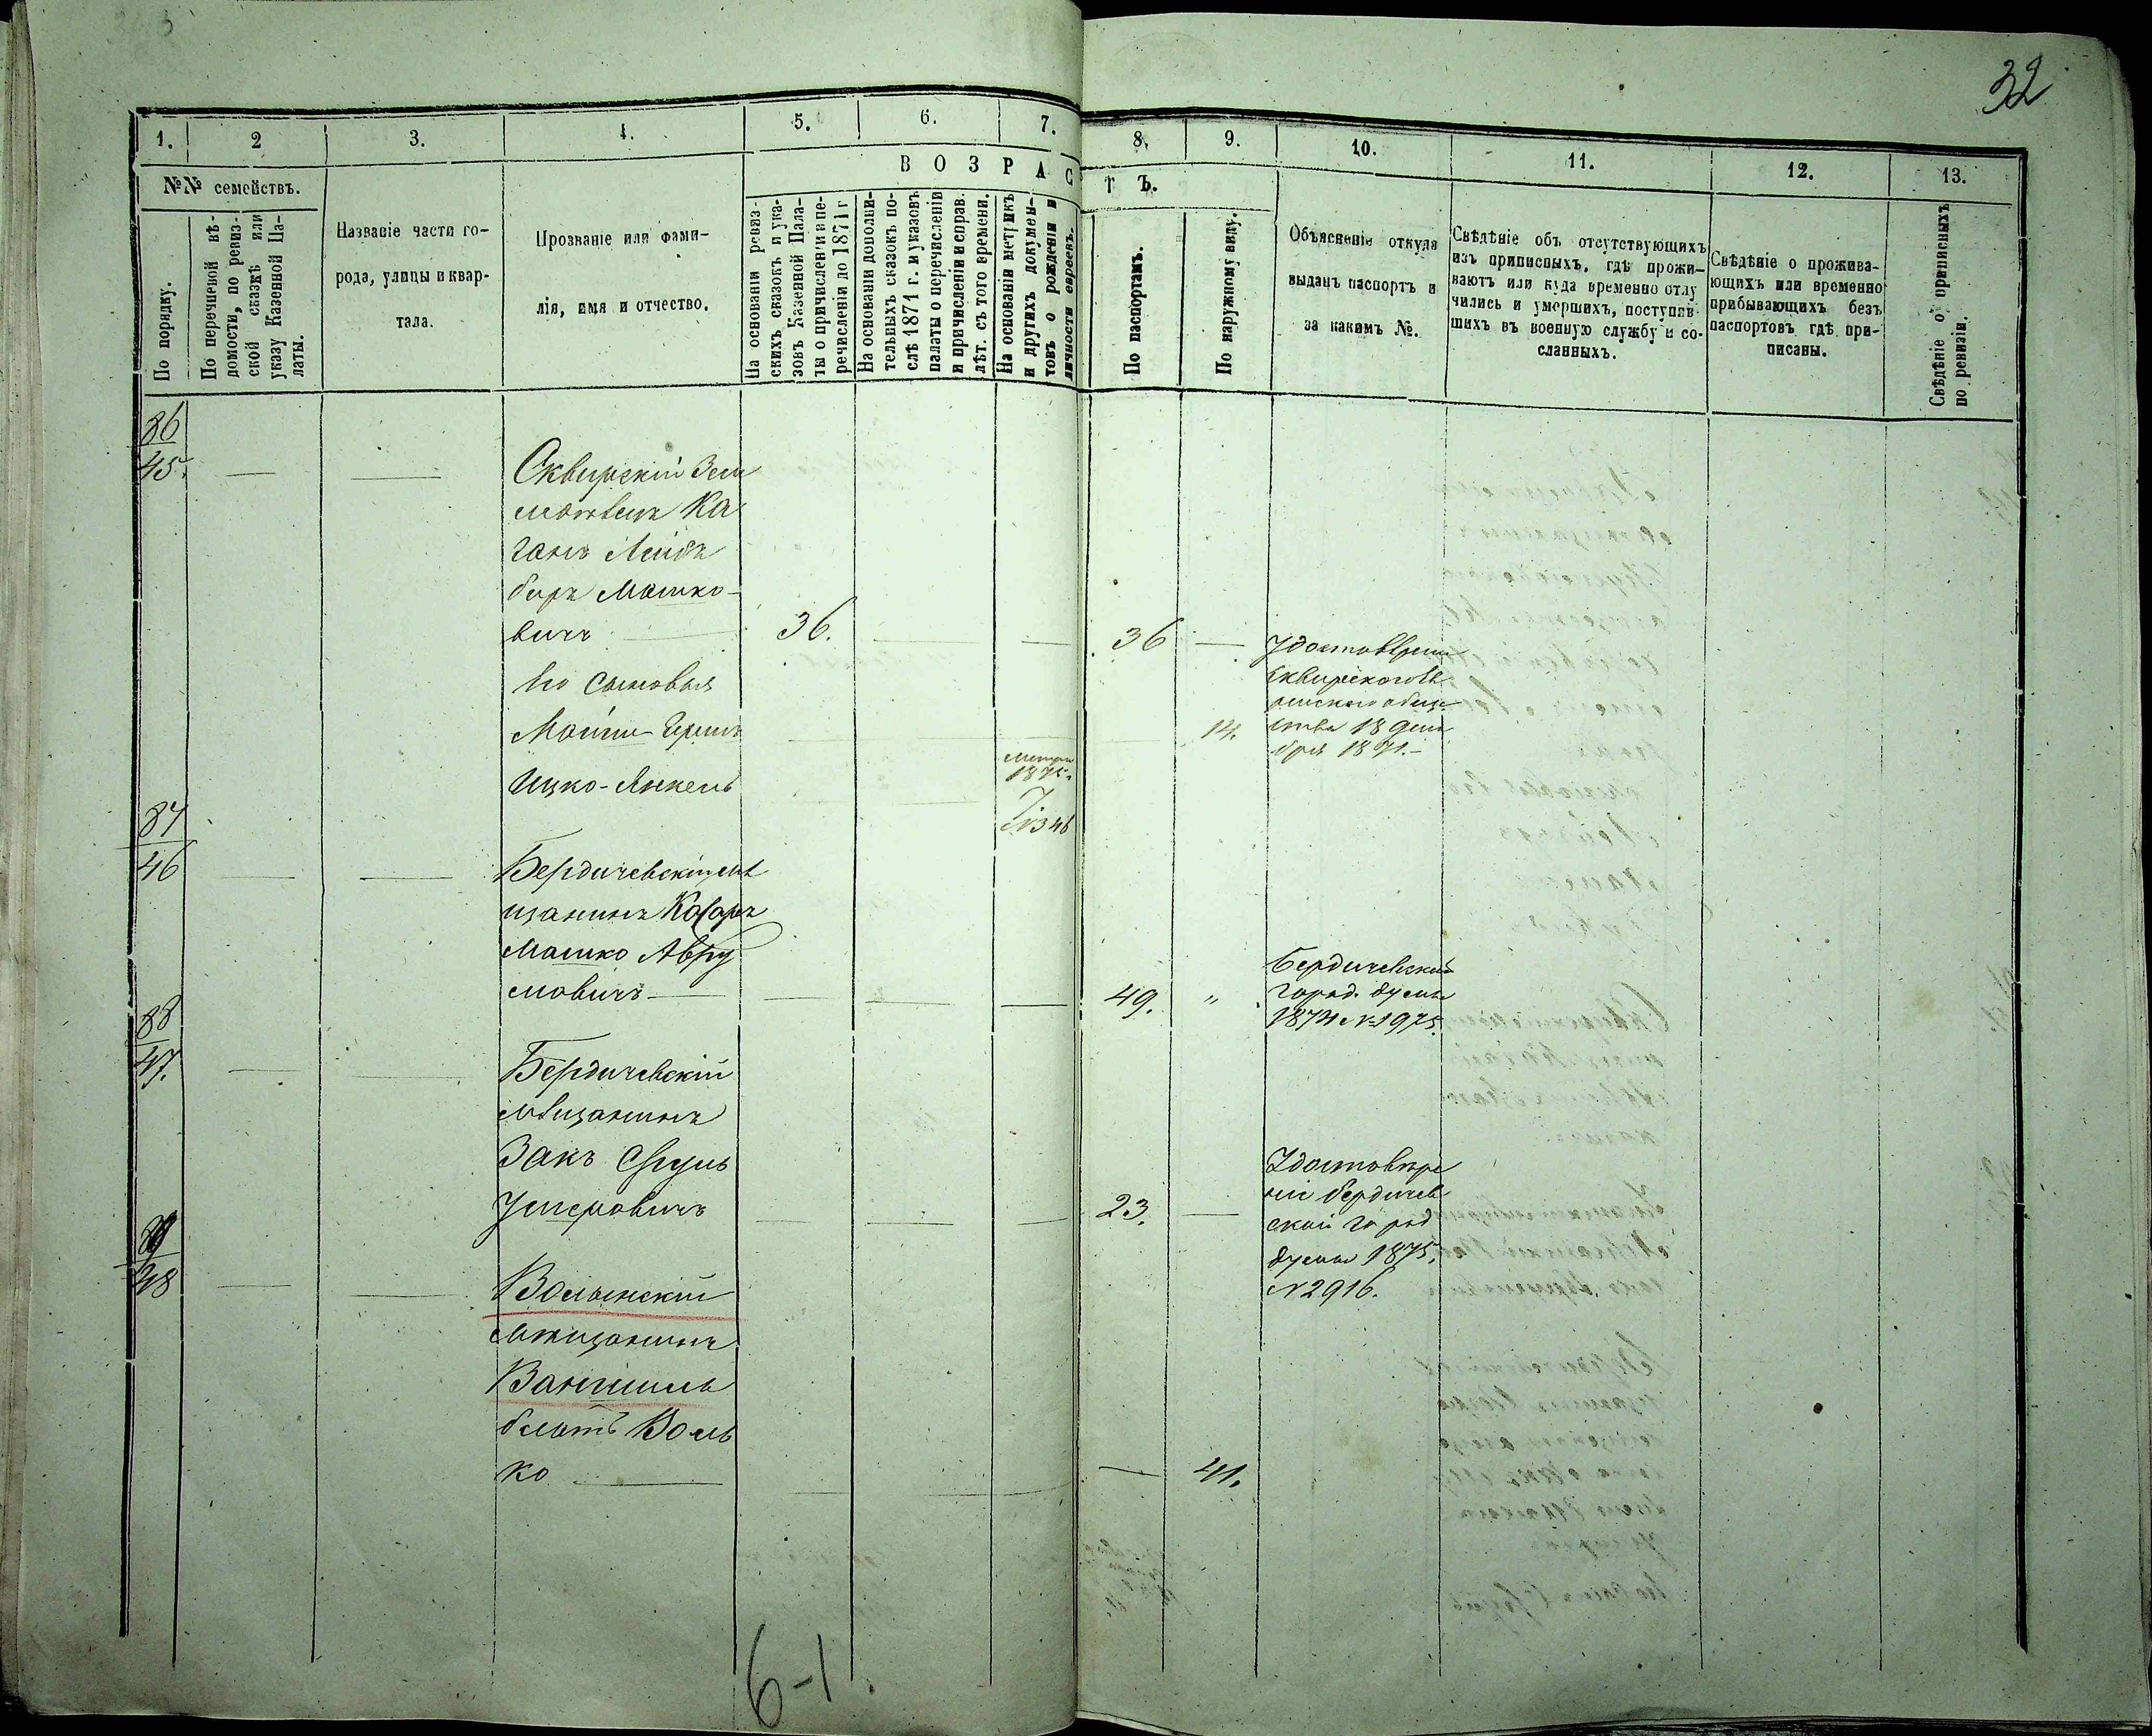 32
1. 2 3. 4. 5. 6. 7. 8. 9. 10. 11. 12. 13.
В О З Р А С Т Ъ.
№№ семействъ.
По порядку.
По перечневой вѣ-
домости, по ревиз-
ской сказкѣ или
указу Казенной Па-
латы.
Названіе части го-
рода, улицы и квар-
тала.
Прозваніе или фами-
лія, имя и отчество.
На основаніи ревиз-
скихъ сказокъ и ука-
зовъ Казенной Пала-
ты о причисленіи и пе-
речисленіи до 1871 г
На основаніи дополни-
тельныхъ сказокъ по-
слѣ 1871 г. и указовъ
палаты о перечисленіи
и причисленіи и справ.
лѣт. съ того времени.
На основаніи метрикъ
и другихъ докумен-
товъ о рожденіи и
личности евреевъ.
По паспортамъ.
По наружному виду.
Объясненіе откуда
выданъ паспортъ и
за какимъ №.
Свѣдѣніе объ отсутствующихъ
изъ приписныхъ, гдѣ прожи-
ваютъ или куда временно отлу
чились и умершихъ, поступив-
шихъ въ военную службу и со-
сланныхъ.
Свѣдѣніе о прожива-
ющихъ или временно
прибывающихъ безъ
паспортовъ гдѣ при-
писаны.
Свѣдѣніе о приписныхъ
по ревизіи.
86
45.
Сквирскій Зем
Ка
ганъ Лейба
беръ Мошко-
вичъ 36. 36
Его сыновья
Мойше-Гершъ 14.
Ицко-Янкель
1875
№346
Удостовѣрен
Сквирскаго
общ
ства 18
бря 1871.
87
46
Бердичевскій мѣ
щанинъ
Мошко Авру
мовичъ 49. "
Бердичевской
город. думы
1874 №1975.
88
47.
Бердичевскій
мѣщанинъ
Закъ Сруль
Усперовичъ 23.
Удостовѣре
ніе бердичев
ской город
думы 1875.
№2916.
89
48
Волынскій
мѣщанинъ
блатъ Воль
ко 41.
6-1.